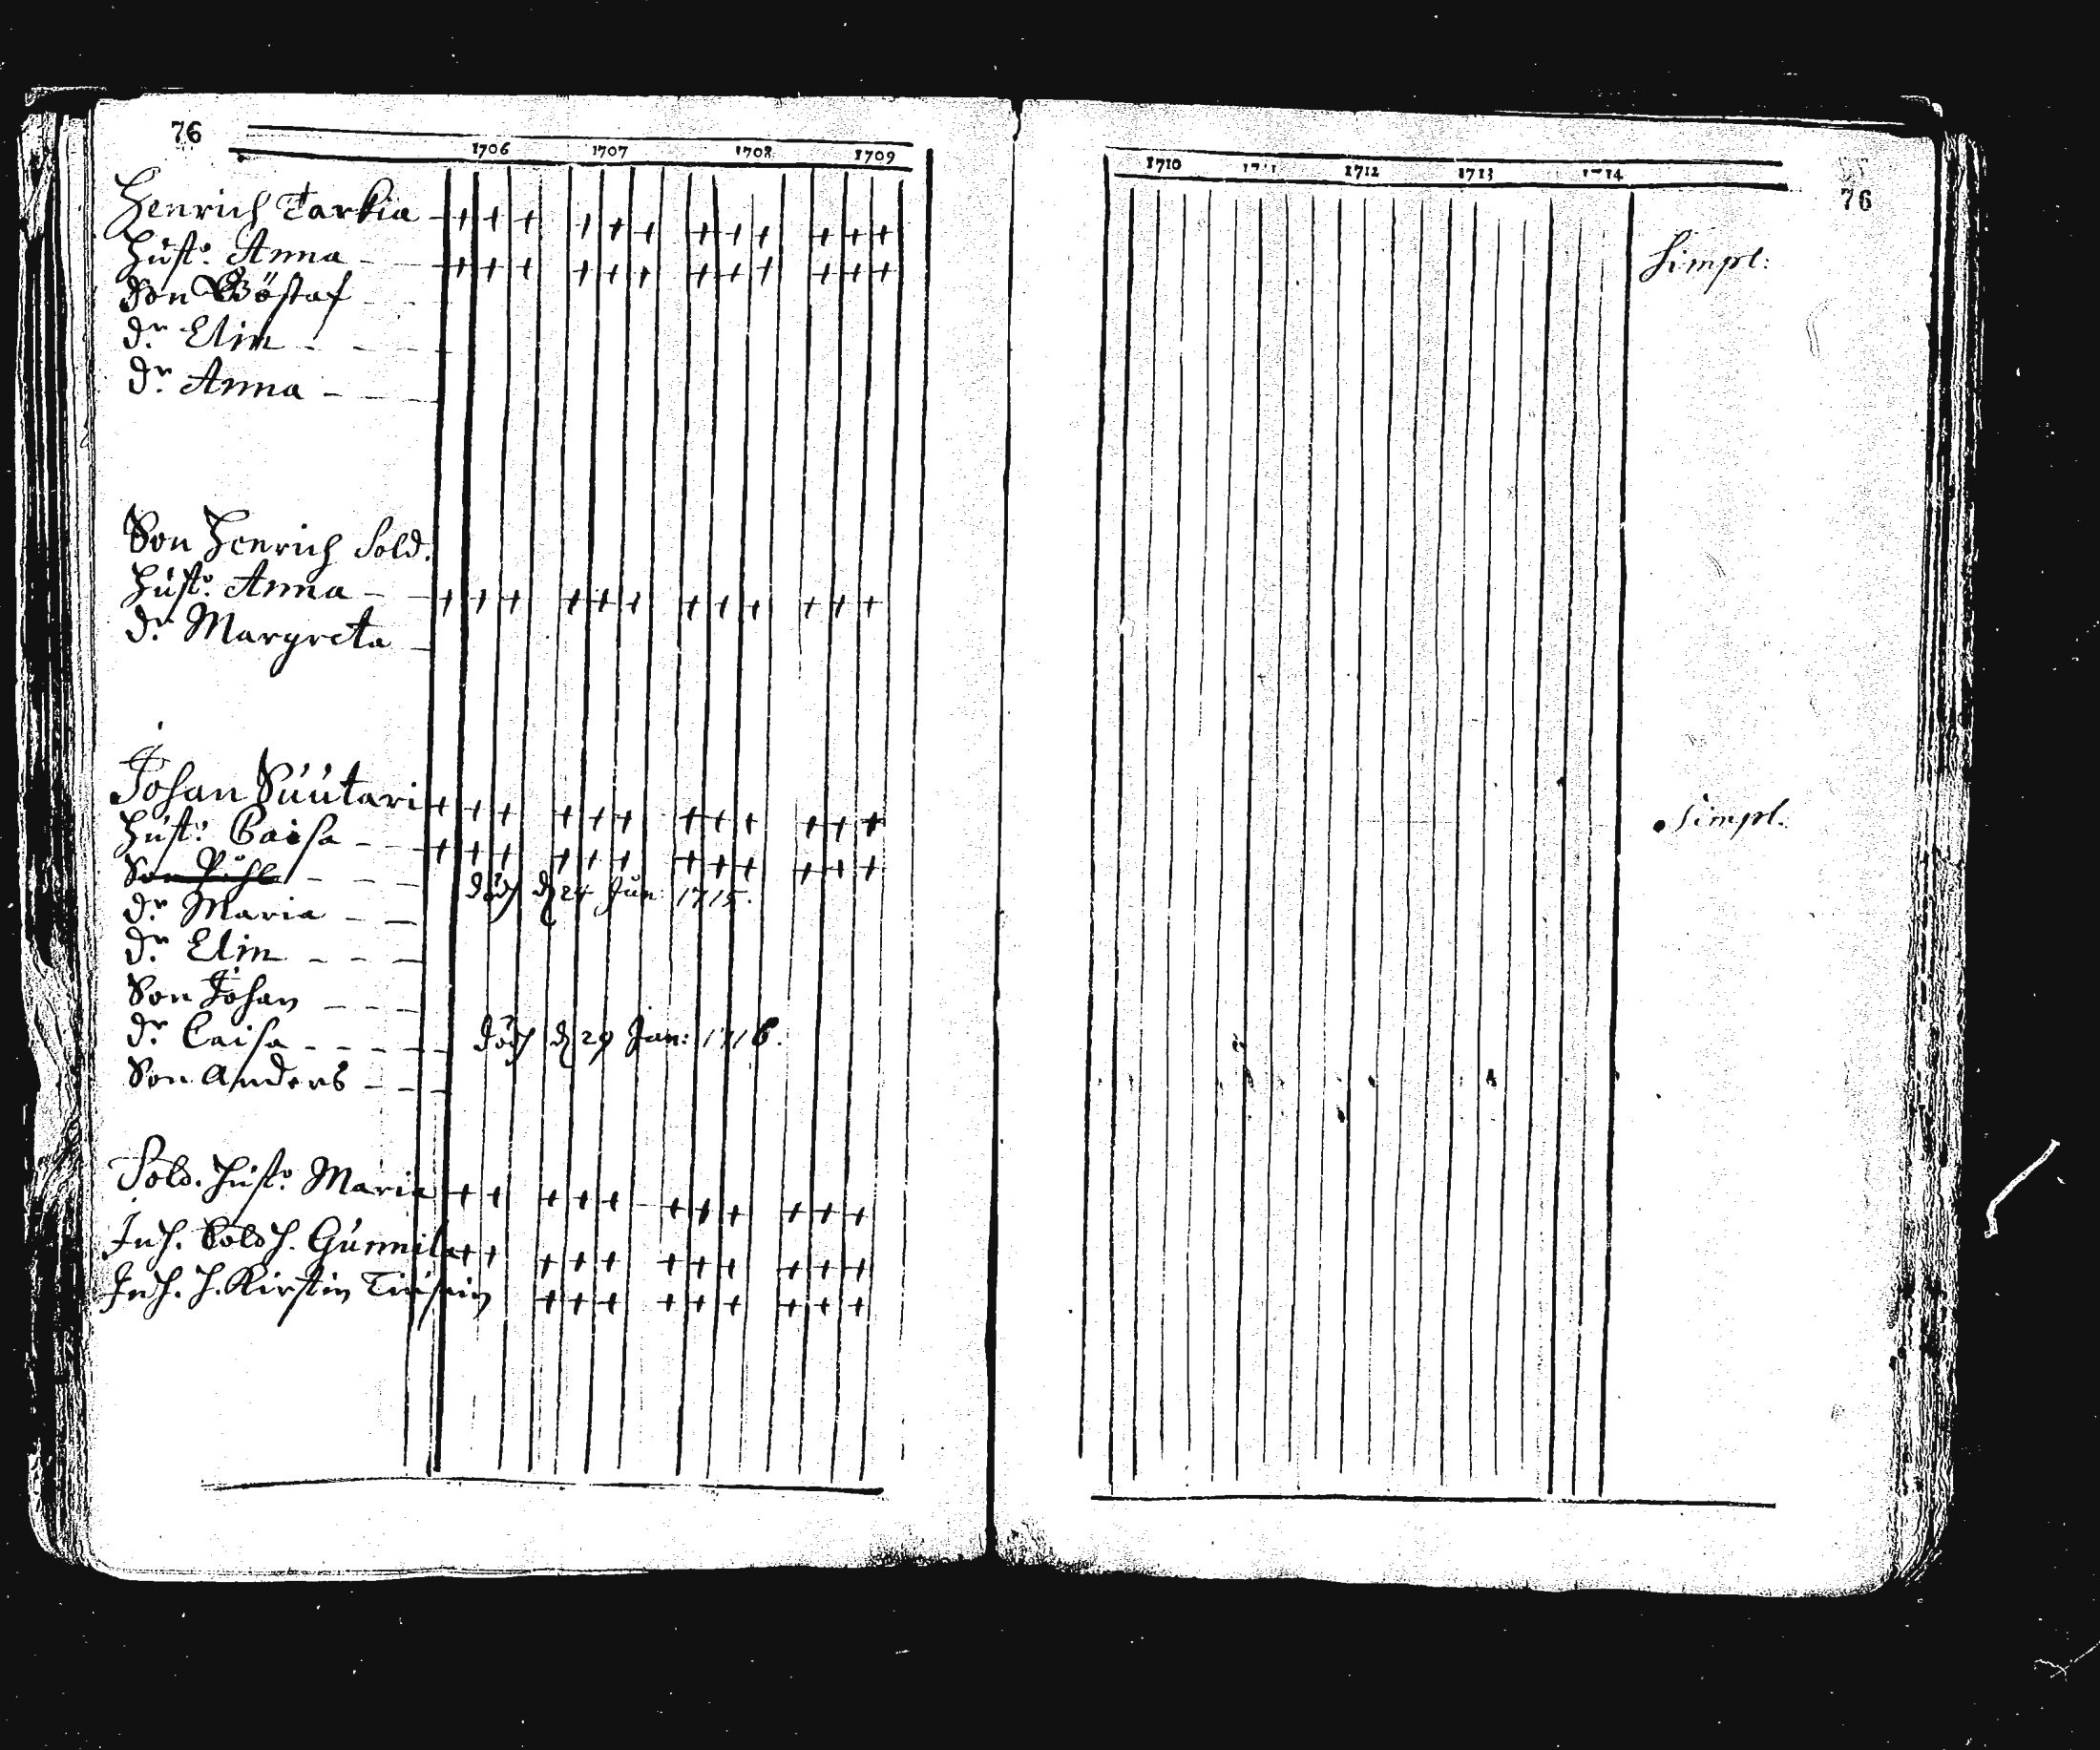 76
1706 1707 1708 1709
Henrich Tarkia + + + + + + + + + + + +
Hust: Anna + + + + + + + + + + + +
Son Göstaf
dr. Elin
dr. Anna
Son Henrich Sold.
Hust: Anna + + + + + + + + + + + +
dr. Margreta
Johan Suutari + + + + + + + + + + + +
Hust: Caisa + + + + + + + + + + + +
Son
dr. Maria
dödh d 24 Jun: 1715.
dr. Elin
Son Johan
dr. Caisa dödh d 29 Jan: 1716.
Son Anders
Sold. Hust: Maria + + + + + + + + + + +
Inh. Sold h. Gunnila + + + + + + + + + + +
Inh. h. Kirstin + + + + + + + + +
1710 1711 1712 1713 1714
76
Simpl:
Simpl.